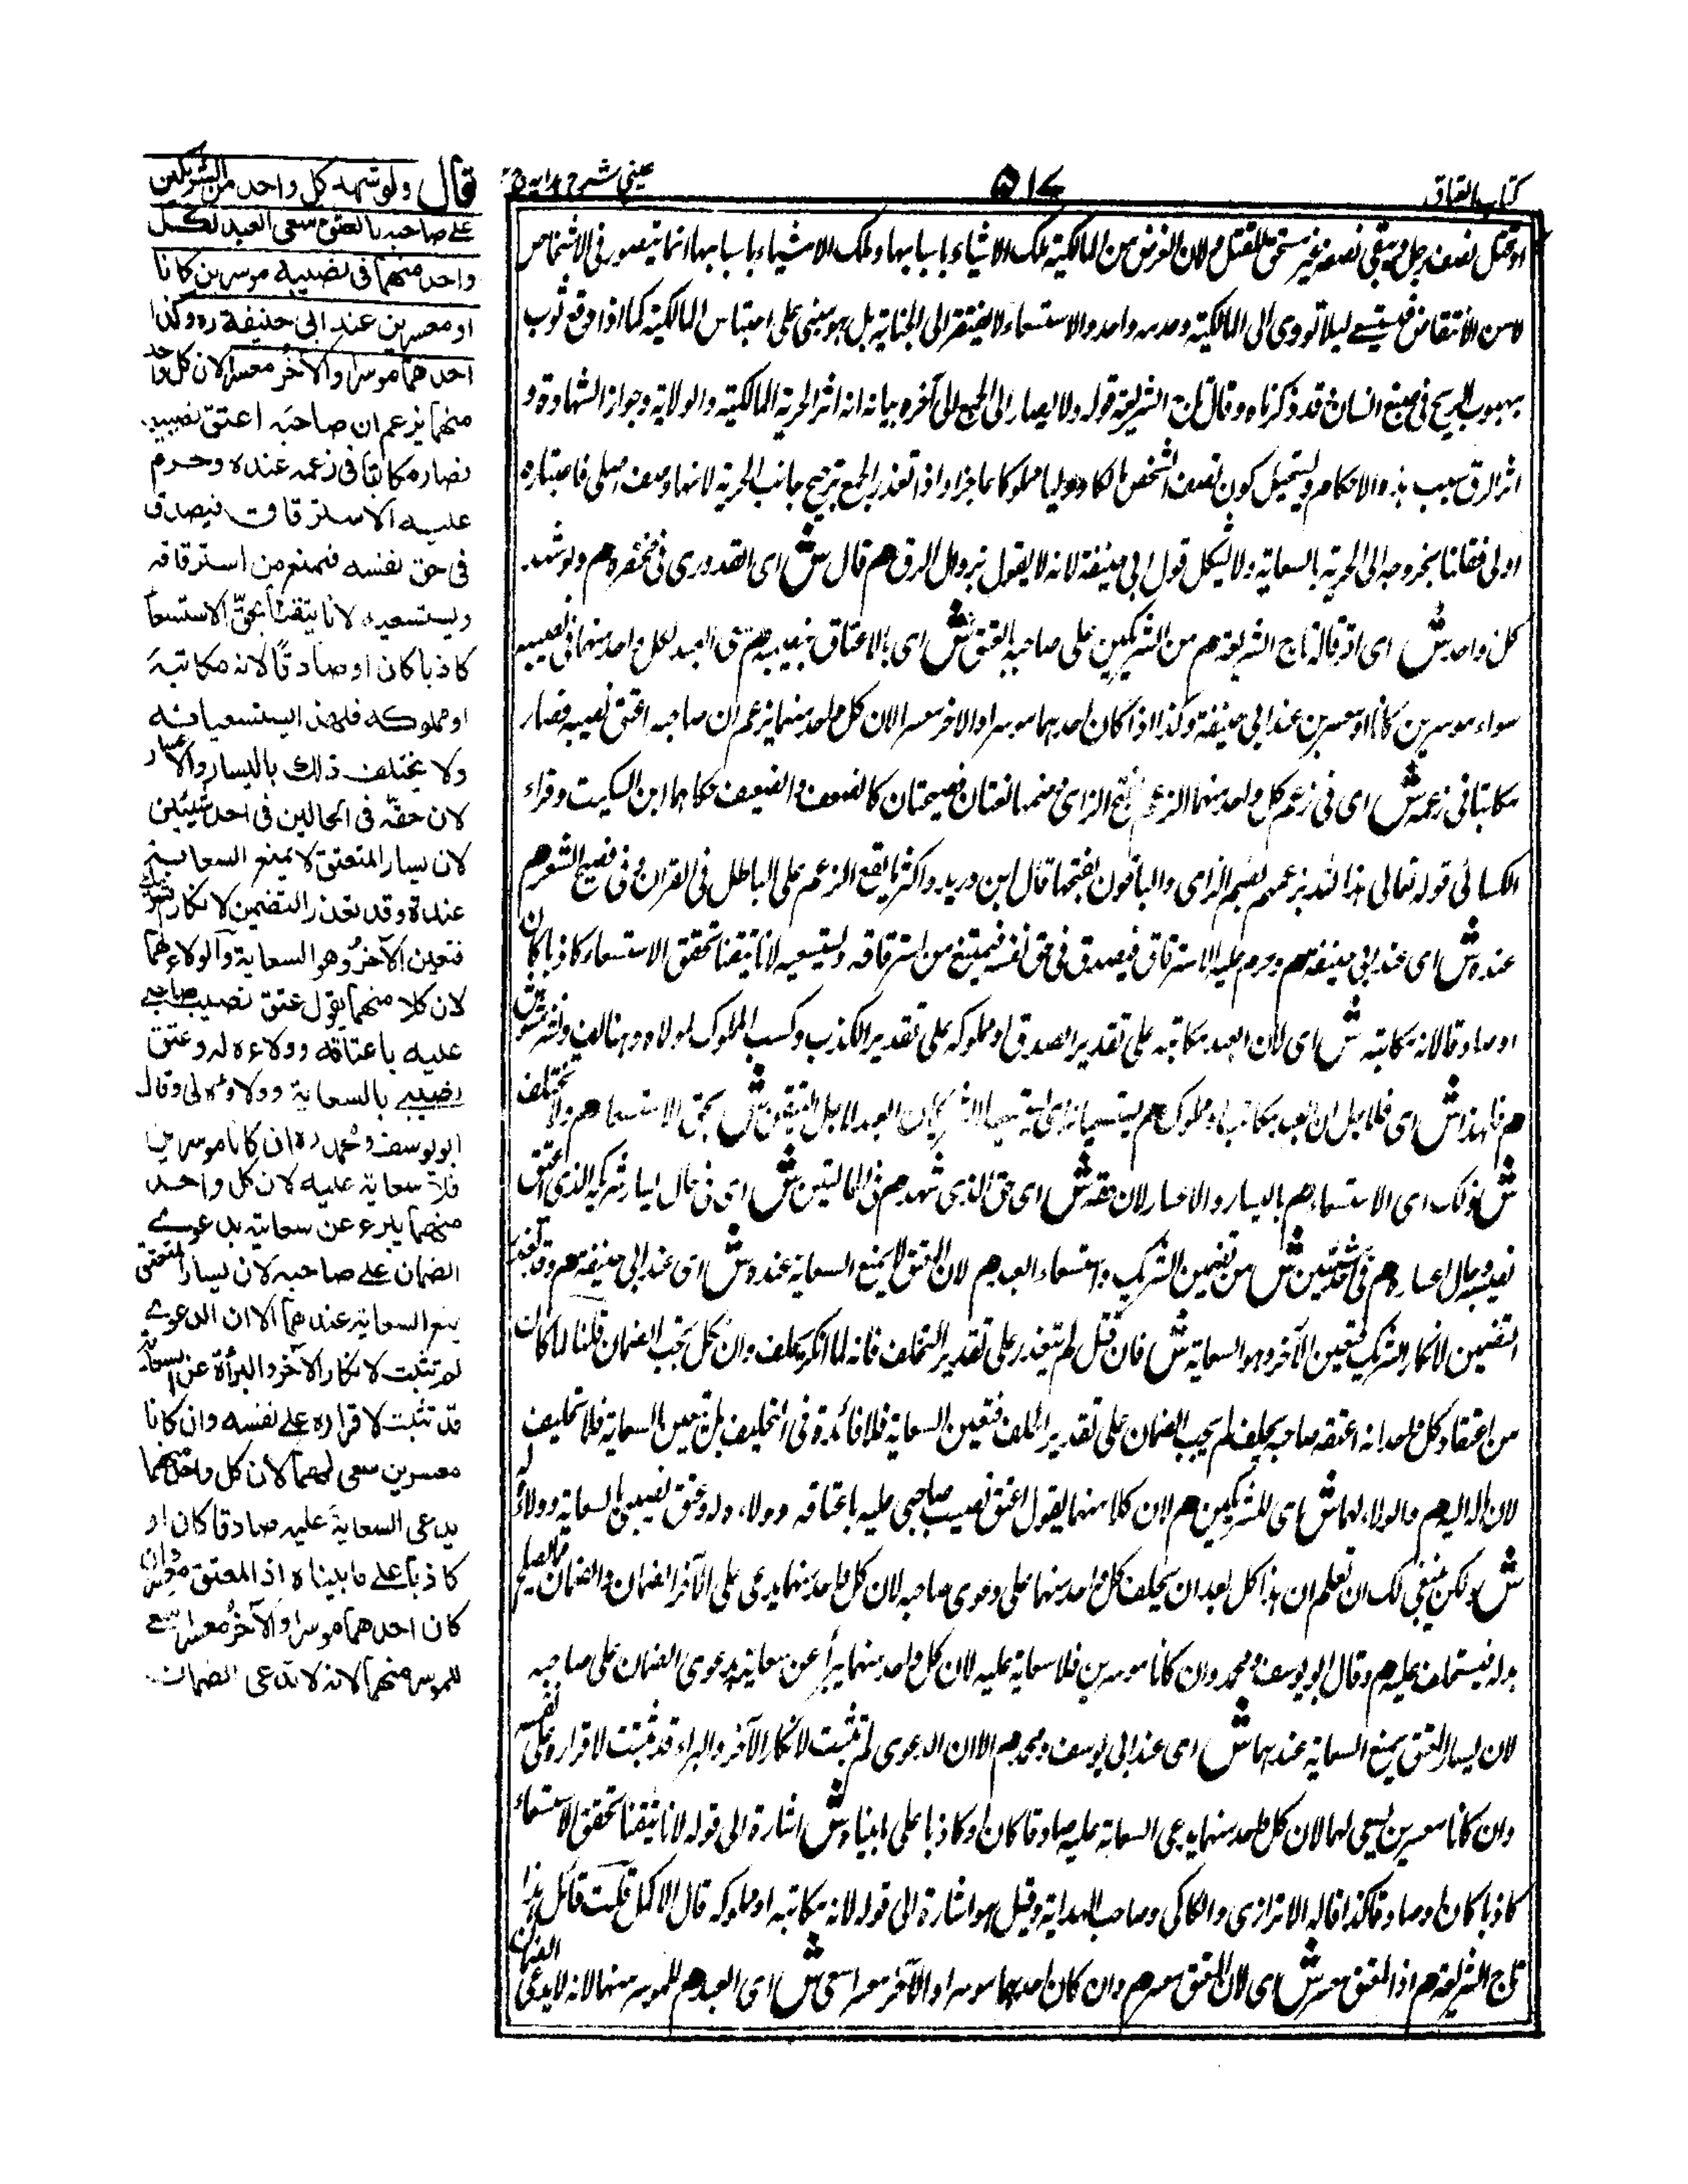 كتاب العتاق
٥١٧
عينى شرح هدايه ج
او قتل نصف رجل ويبقى نصفه غير مستحق للقتل م لان الغرض من المالكية ملك الاشياء باسبابها وملك الاشياء باسبابها انما يتصور فى الاشخاص
لا من الانتقاض فيستسعى ليلا تودى الى المالكية وحده واحد والاستسعاء لا يفتقر الى الجناية بل هو يبنى على احتباس المالكية كما اذا وقع ثوب
بهبوب الريح فى صبغ انسان قد ذكرناه وقال تاج الشريعة قوله ولا يصار الى الجمع الى آخره بيانه انه اثر الحرية المالكية والولاية وجواز الشهادة و
اثر الرق سلب هذه الاحكام ويستحيل كون نصف الشخص مالكا وليا مملوكا عاجزا واذا تعذر الجمع ترجح جانب الحرية لانها وصف اصلى فاعتباره
اولى فقلنا بخروجه الى الحرية بالسعاية ولا يشكل قول ابى حنيفة لانه لا يقول بزوال الرق هم قال ش اى القدورى فى مختصره هم ولو شهد
كل واحد ش اى اذ قاله تاج الشريعة هم من الشريكين على صاحبه بالعتق ش اى بالاعتاق نصيبه هم سعى العبد لكل واحد منهما فى نصيبه
سواء موسرين كانا او معسرين عند ابى حنيفة وكذا اذا كان احدهما موسرا والاخر معسرا لان كل واحد منهما يزعم ان صاحبه اعتق نصيبه فصار
مكاتبا فى زعمه ش اى فى زعم كل واحد منهما الزعم بفتح الزاى وضمها لغتان فصيحتان كالضعف والضعف حكاهما ابن السكيت وقراء
الكسائى قوله تعالى هذا لله بزعمهم بضم الزاى والباقون بفتحها قال ابن دريد واكثر ما يقع الزعم على الباطل فى القران وفى فصيح الشعر هم
عنده ش اى عند ابى حنيفة هم وحرم عليه الاسترقاق فيصدق فى حق نفسه فيمتنع من استرقاقه ويستسعيه لانا تيقنا بحق الاستسعاء كاذبا كان
او صادقا لانه مكاتبه ش اى لان العبد مكاتبه على تقدير الصدق او مملوكه على تقدير الكذب وكسب المملوك لمولاه
هم فلهذا ش اى فلاجل ان العبد مكاتب او مملوك هم يستسعيانه اى يستسعيا الشريكان العبد لاجل التيقن ش بحق الاستسعاء هم ولا يختلف
ش ذلك اى الاستسعاء هم باليسار والاعسار لان حقه ش اى حق الذى شهد هم فى الحالتين ش اى فى حال يسار شريكه الذى اعتق
نصيبه وحال اعساره هم فى احد شيئين ش من تضمين الشريك واستسعاء العبد هم لان المعتق لا يمنع السعاية عنده ش اى عند ابى حنيفة هم وقد تعذر
التضمين لانكار الشريك فتعين الآخر وهو السعاية ش فان قيل لم يتعذر على تقدير التحلف فانه لما انكر يحلف وان نكل يجب الضمان قلنا لما كان
من اعتقاد كل واحد انه اعتقه صاحبه يحلف لم يجب الضمان على تقدير الحلف فتعين السعاية فلا فائدة فى التحليف بل تتعين السعاية فلا تحليف
لان المال اليه هم والولاء لهما ش اى للشريكين هم لان كلا منهما يقول اعتق نصيب صاحبى عليه باعتاقه وولاءه له وعتق نصيبى بالسعاية وولاؤه
ش ولكن ينبغى لك ان تعلم ان هذا كل بعد ان يحلف كل واحد منهما على دعوى صاحبه لان كل واحد منهما يدعى على الآخر الضمان والضمان مما يصلح
بدله فيستحلف عليه هم وقال ابو يوسف ومحمد وان كانا موسرين فلا سعاية عليه لان كل واحد منهما يبرأ عن سعايته بدعوى الضمان على صاحبه
لان يسار المعتق يمنع السعاية عندهما ش اى عند ابى يوسف ومحمد هم الا ان الدعوى لم تثبت لانكار الآخر والبراءة قد ثبتت لاقراره على نفسه
وان كانا معسرين يسعى لهما لان كل واحد منهما يدعى السعاية عليه صادقا كان او كاذبا على ما بيناه ش اشارة الى قوله لانا تيقنا بحق الاستسعاء
كاذبا كان او صادقا كذا قاله الاترازى والكاكى وصاحب الهداية وقيل هو اشارة الى قوله لانه مكاتبه او مملوكه قال الاكمل قلت قائل هذا
تاج الشريعة هم اذ المعتق معسر ش اى لان المعتق معسر هم وان كان احدهما موسرا والآخر معسرا سعى ش اى العبد هم للموسر منهما لانه لا يدعى الضمان
قال ولو شهد كل واحد من الشريكين
على صاحبه بالعتق سعى العبد لكل
واحد منهما فى نصيبه موسرين كانا
او معسرين عند ابى حنيفة ره وكذا
احدهما موسرا والآخر معسرا لان كل واحد
منهما يزعم ان صاحبه اعتق نصيبه
فصار مكاتبا فى زعمه عنده وحرم
عليه الاسترقاق فيصدق
فى حق نفسه فيمنع من استرقاقه
ويستسعيه لانا تيقنا بحق الاستسعا
كاذبا كان او صادقا لانه مكاتبه
او مملوكه فلهذا يستسعيانه
ولا يختلف ذلك باليسار والاعسار
لان حقه فى الحالين فى احد شيئين
لان يسار المعتق لا يمنع السعاية
عنده وقد تعذر التضمين لانكار الشريك
فتعين الآخر وهو السعاية والولاء لهما
لان كلا منهما يقول عتق نصيب صاحبى
عليه باعتاقه وولاءه له وعتق
نصيبى بالسعاية وولاؤه لى وقال
ابو يوسف ومحمد ره ان كانا موسرين
فلا سعاية عليه لان كل واحد
منهما يبرء عن سعايته بدعوى
الضمان على صاحبه لان يسار المعتق
يمنع السعاية عندهما الا ان الدعوى
لم تثبت لانكار الآخر والبرأة عن السعاية
قد تثبت لاقراره على نفسه وان كانا
معسرين سعى لهما لان كل واحد منهما
يدعى السعاية عليه صادقا كان او
كاذبا على ما بيناه اذ المعتق معسر وان
كان احدهما موسرا والآخر معسرا سعى
للموسر منهما لانه لا يدعى الضمان